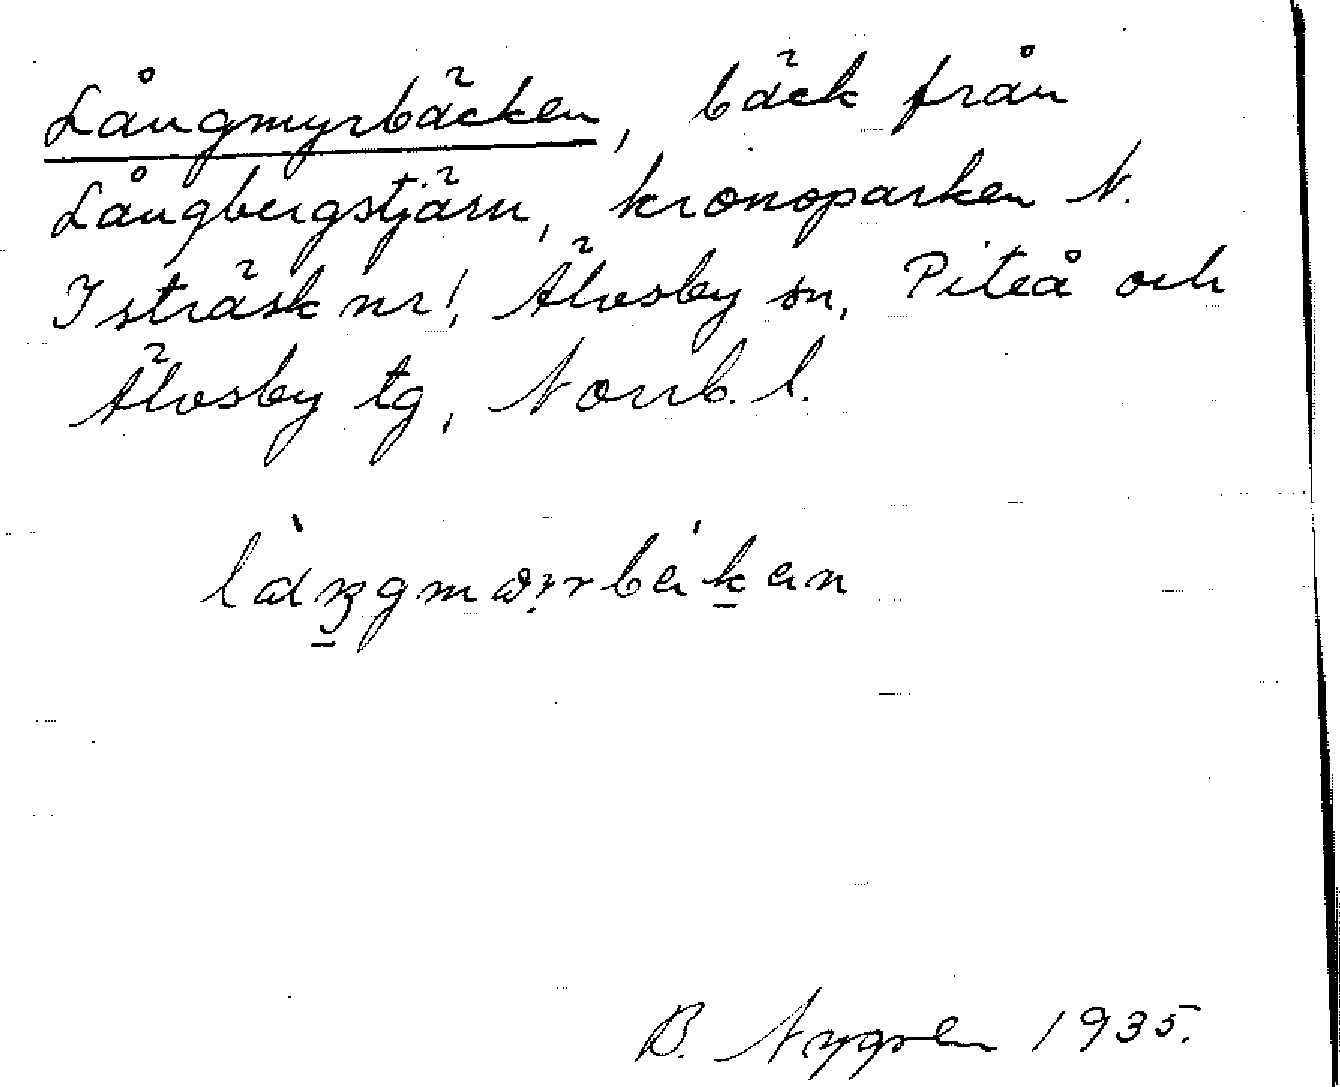 Långmyrbäcken, bäck från
Långbergstjärn, kronoparken N.
Isträsk nr 1, Älvsby sn, Piteå och
Älvsby tg, Norrb. l.
B. Nygren 1935.